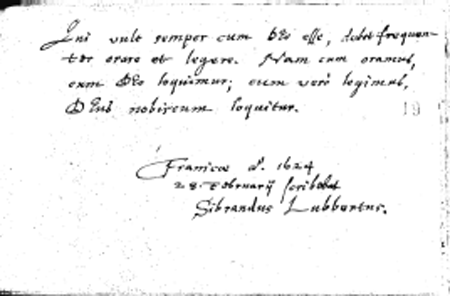 Qui vult semper cum Deo esse, debet frequen-
ter orare et legere. Nam cum oramus,
cum Deo loquimur; cum verò legimus,
Deus nobiscum loquitur.
19
Franicae aº. 1624
28. Februarij scribebat
Sibrandus Lubbertus.